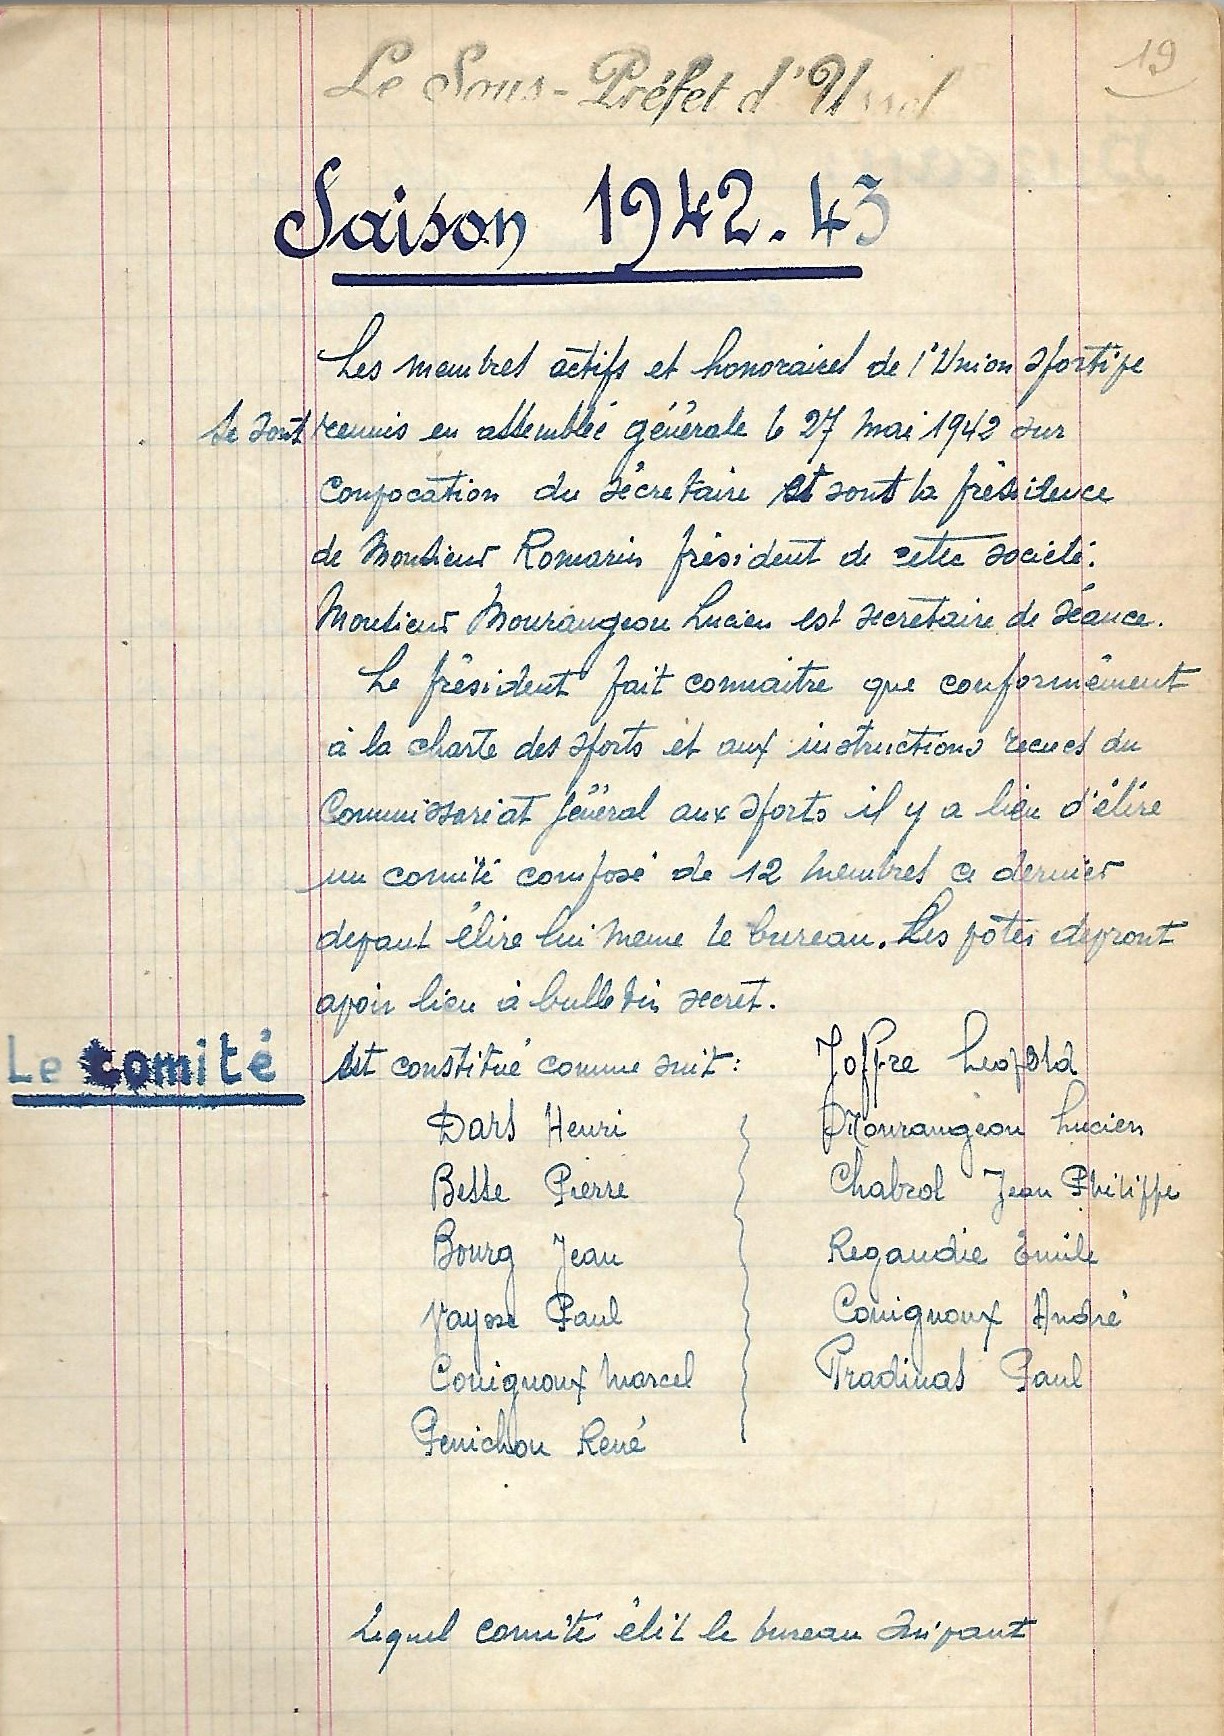 19
Le Sous-Préfet d'Ussel
Saison 1942.43
Les membres actifs et honoraires de l'Union sportive
se sont réunis en assemblée générale le 27 mai 1942 sur
convocation du secrétaire et sous la présidence
de Monsieur Romarin président de cette société.
Monsieur Mourangeon Lucien est secretaire de séance.
Le président fait connaitre que conformément
à la charte des sports et aux instructions recues du
Commissariat général aux sports il y a lieu d'élire
un comité composé de 12 membres ce dernier
devant élire lui meme le bureau. Les votes devront
avoir lieu à bulletin secret.
Le comité est constitué comme suit : Joffre Leopold
Dars Henri Mourangeon Lucien
Besse Pierre Chabrol Jean Philippe
Bourg Jean Regaudie Emile
Vaysse Paul Couignoux André
Couignoux Marcel Pradinas Paul
Penichou René
Lequel comité élit le bureau suivant